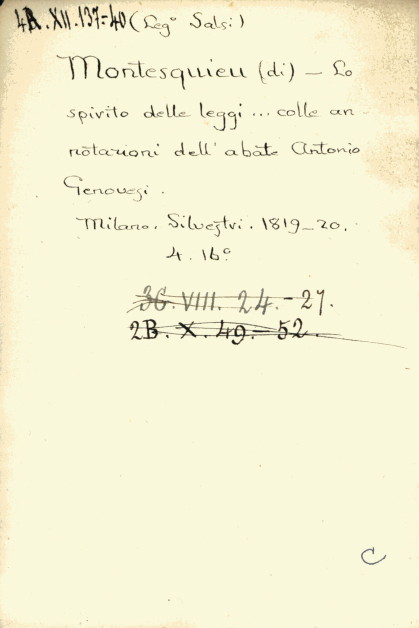 4B. XII. 137-40 (Leg° Salsi)
Montesquieu (di) — Lo
spirito delle leggi ... colle an-
notazioni dell' abate Antonio
Genovesi.
Milano. Silvestri. 1819-20.
4. 16°
3C. VIII. 24.-27.
2B. X. 49.-52.
C